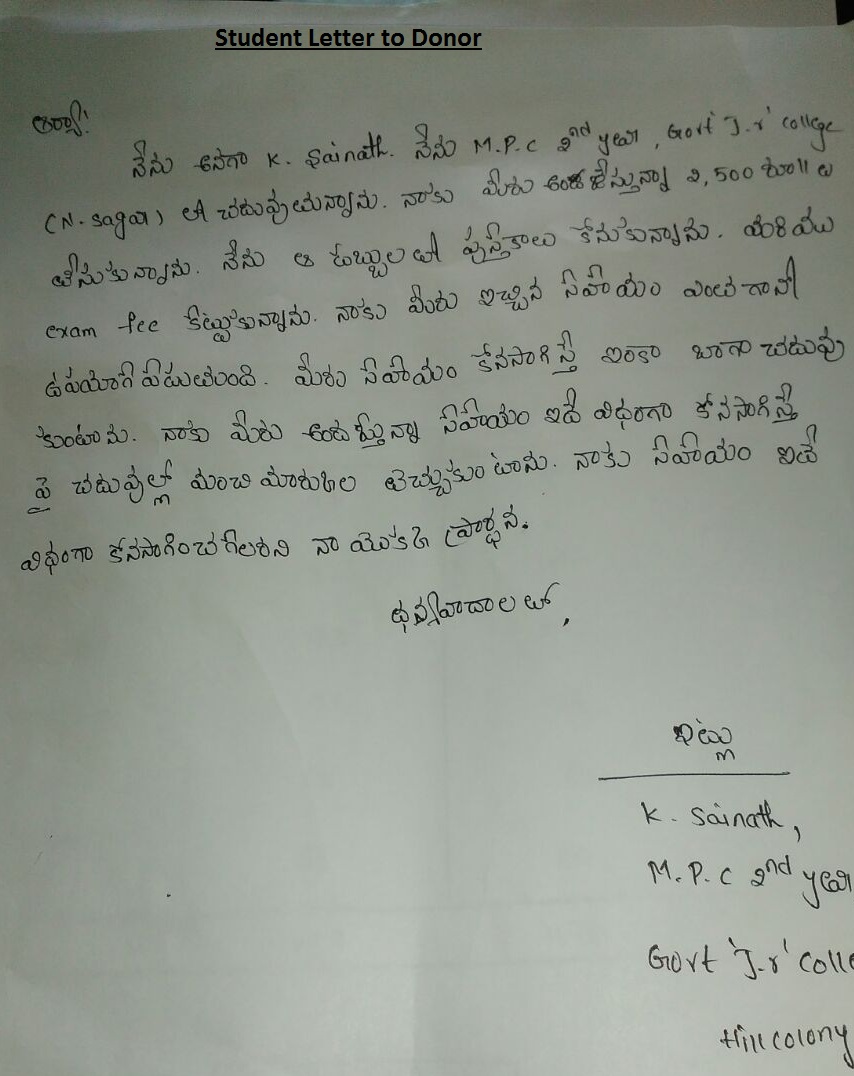 Student Letter to Donor
ఆర్యా!
నేను అనగా K. Sainath. నేను M.P.C 2nd year, Govt 'J.r' college
(N. sagar) లో చదువుచున్నాను. నాకు మీరు అందజేస్తున్నా 2,500 రూ॥లు
తీసుకున్నాను. నేను ఆ డబ్బులతో పుస్తకాలు కొనుకున్నాను. మరియు
exam fee కట్టుకున్నాను. నాకు మీరు ఇచ్చిన సహాయం ఎంతగానో
ఉపయోగపడుతుంది. మీరు సహాయం కొనసాగిస్తే ఇంకా బాగా చదువు
కుంటాను. నాకు మీరు అందిస్తున్నా సహాయం ఇదే విధంగా కోనసాగిస్తే
పై చదువుల్లో మంచి మారుకుల తెచ్చుకుంటాను. నాకు సహాయం ఇదే
విధంగా కొనసాగించగలరని నా యొక్క ప్రార్థన.
ధన్యవాదాలతో,
ఇట్లు
K. Sainath,
M.P.C 2nd year
Govt 'J.r' Colle
Hill colony